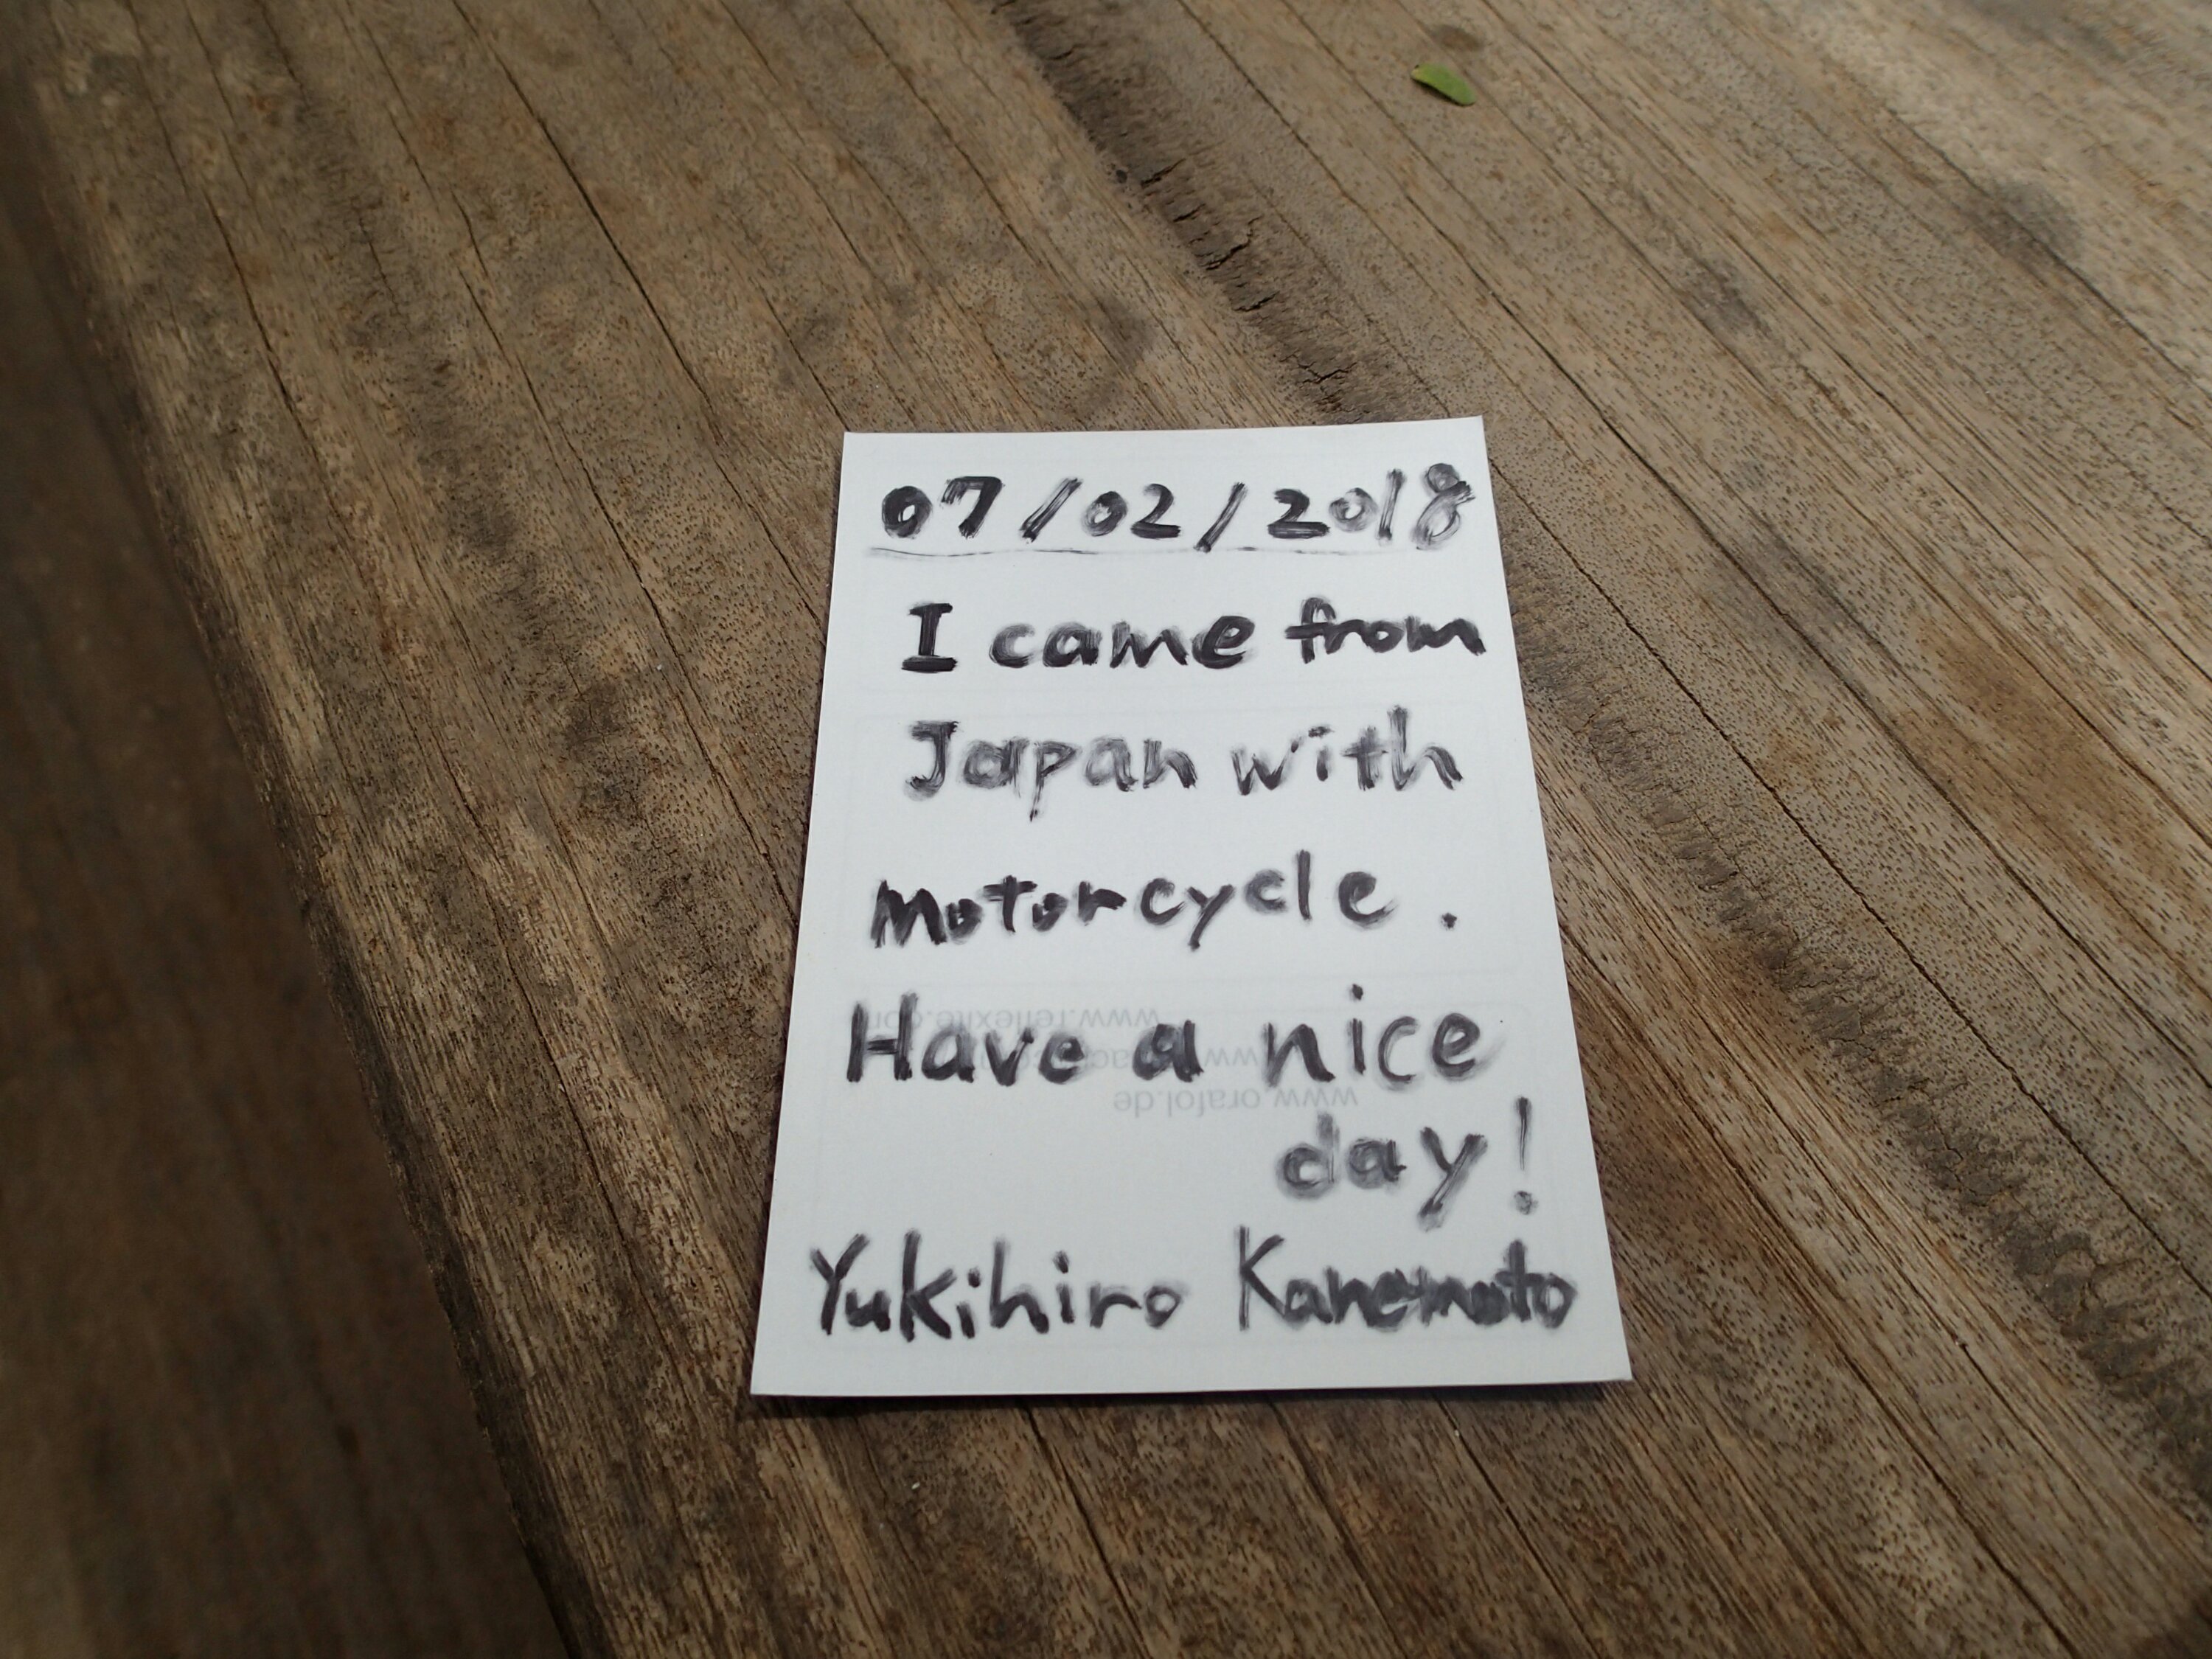 07/02/2018
I came from
Japan with
Motorcycle.
Have a nice
day!
Yukihiro Kanemoto
www.reflexite.com
www.orafol.de